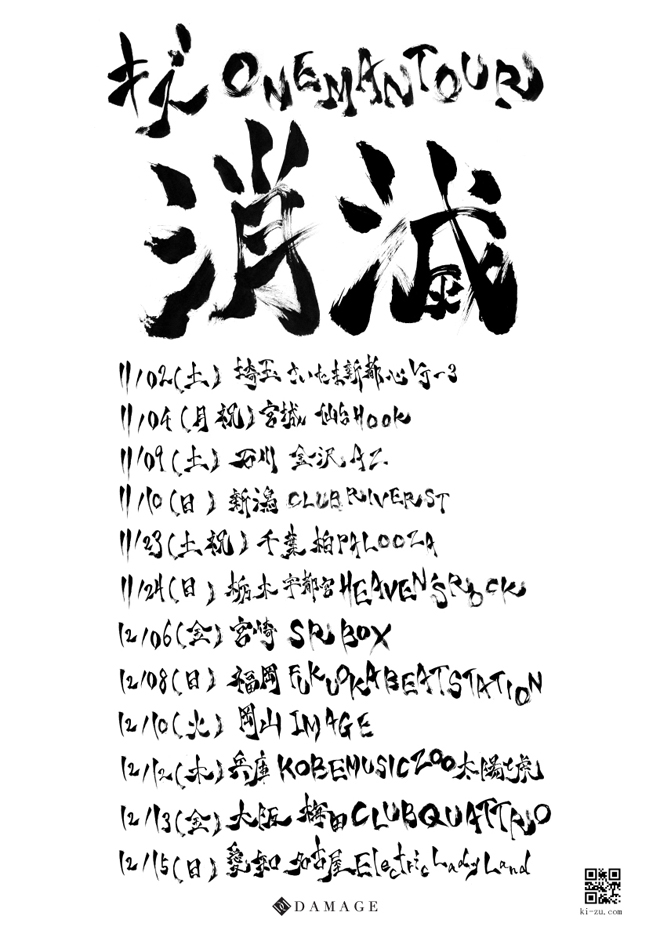 ONEMANTOUR
消滅
11/02(土) 埼玉 さいたま新都心VJ-3
11/04(月祝)宮城 仙台Hook
11/09(土) 石川 金沢AZ
11/10(日) 新潟 CLUBRIVERST
11/23(土祝)千葉 柏PALOOZA
11/24(日) 栃木 宇都宮HEAVEN'SROCK
12/06(金)宮崎 SR BOX
12/08(日) 福岡 FUKUOKABEATSTATION
12/10(火) 岡山 IMAGE
12/12(木)兵庫 KOBEMUSICZOO太陽と虎
12/13(金)大阪 梅田CLUBQUATTRO
12/15(日) 愛知 名古屋ElectricLadyLand
DAMAGE
ki-zu.com